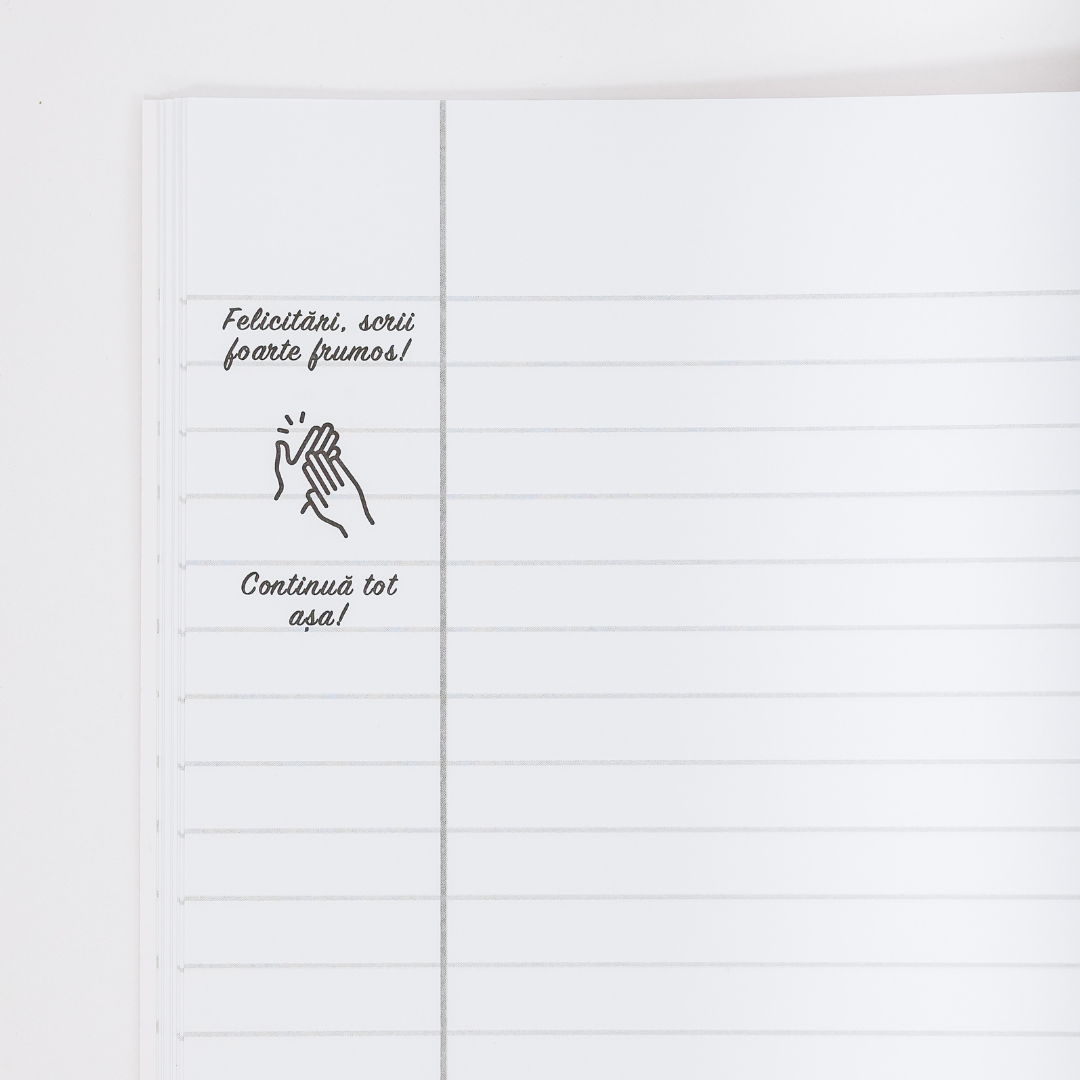 Felicitări, scrii
foarte frumos!
Continuă tot
așa!